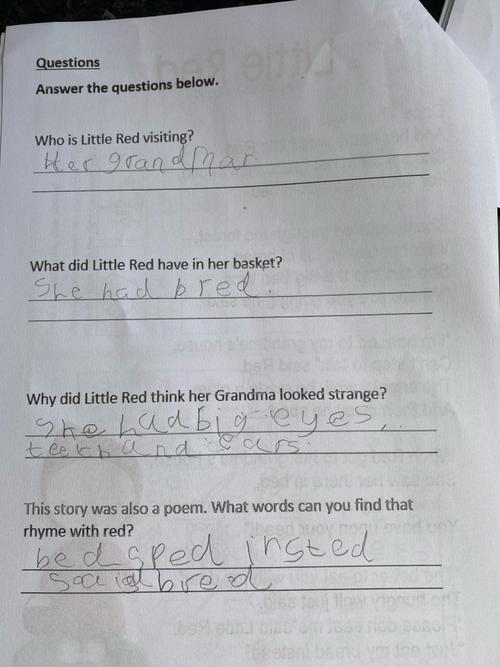 Questions
Answer the questions below.
Who is Little Red visiting?
Her grandMar
What did Little Red have in her basket?
She had bred.
Why did Little Red think her Grandma looked strange?
She had big eyes,
teeth and ears.
This story was also a poem. What words can you find that
rhyme with red?
bed sped insted
bred